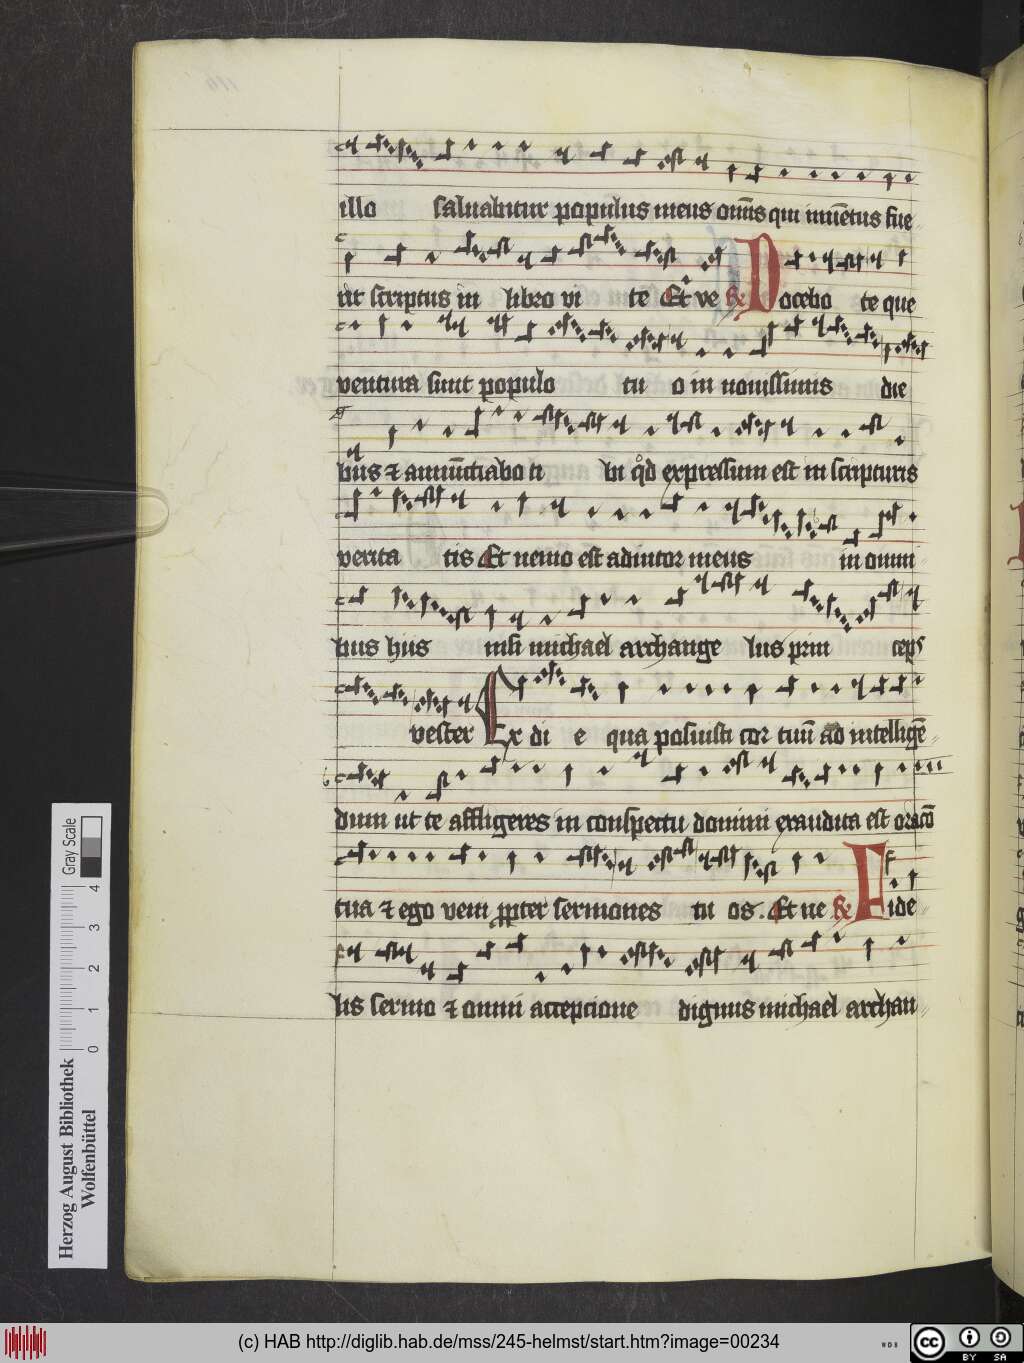 illo saluabitur populus meus om̄is qui inuētus fue
rit scriptus in libro vi te Et ve Docebo te que
ventura sunt populo tuo in nouissimis die
bus ⁊ annūctiabo ti bi qͦd expressum est in scripturis
verita tis Et nemo est adiutor meus in omni
bus hiis nisi michael archange lus prin ceps
vester Ex di e qua posuisti cor tuū ad intelligē
dum ut te affligeres in conspectu domini exaudita est oracō
tua ⁊ ego veni ꝓpter sermones tu os. Et ue Fide
lis sermo ⁊ omni accepcione dignus michael archan
Herzog August Bibliothek
Wolfenbüttel
0 1 2 3 4 Gray Scale
(c) HAB http://diglib.hab.de/mss/245-helmst/start.htm?image=00234
WDB
cc BY SA